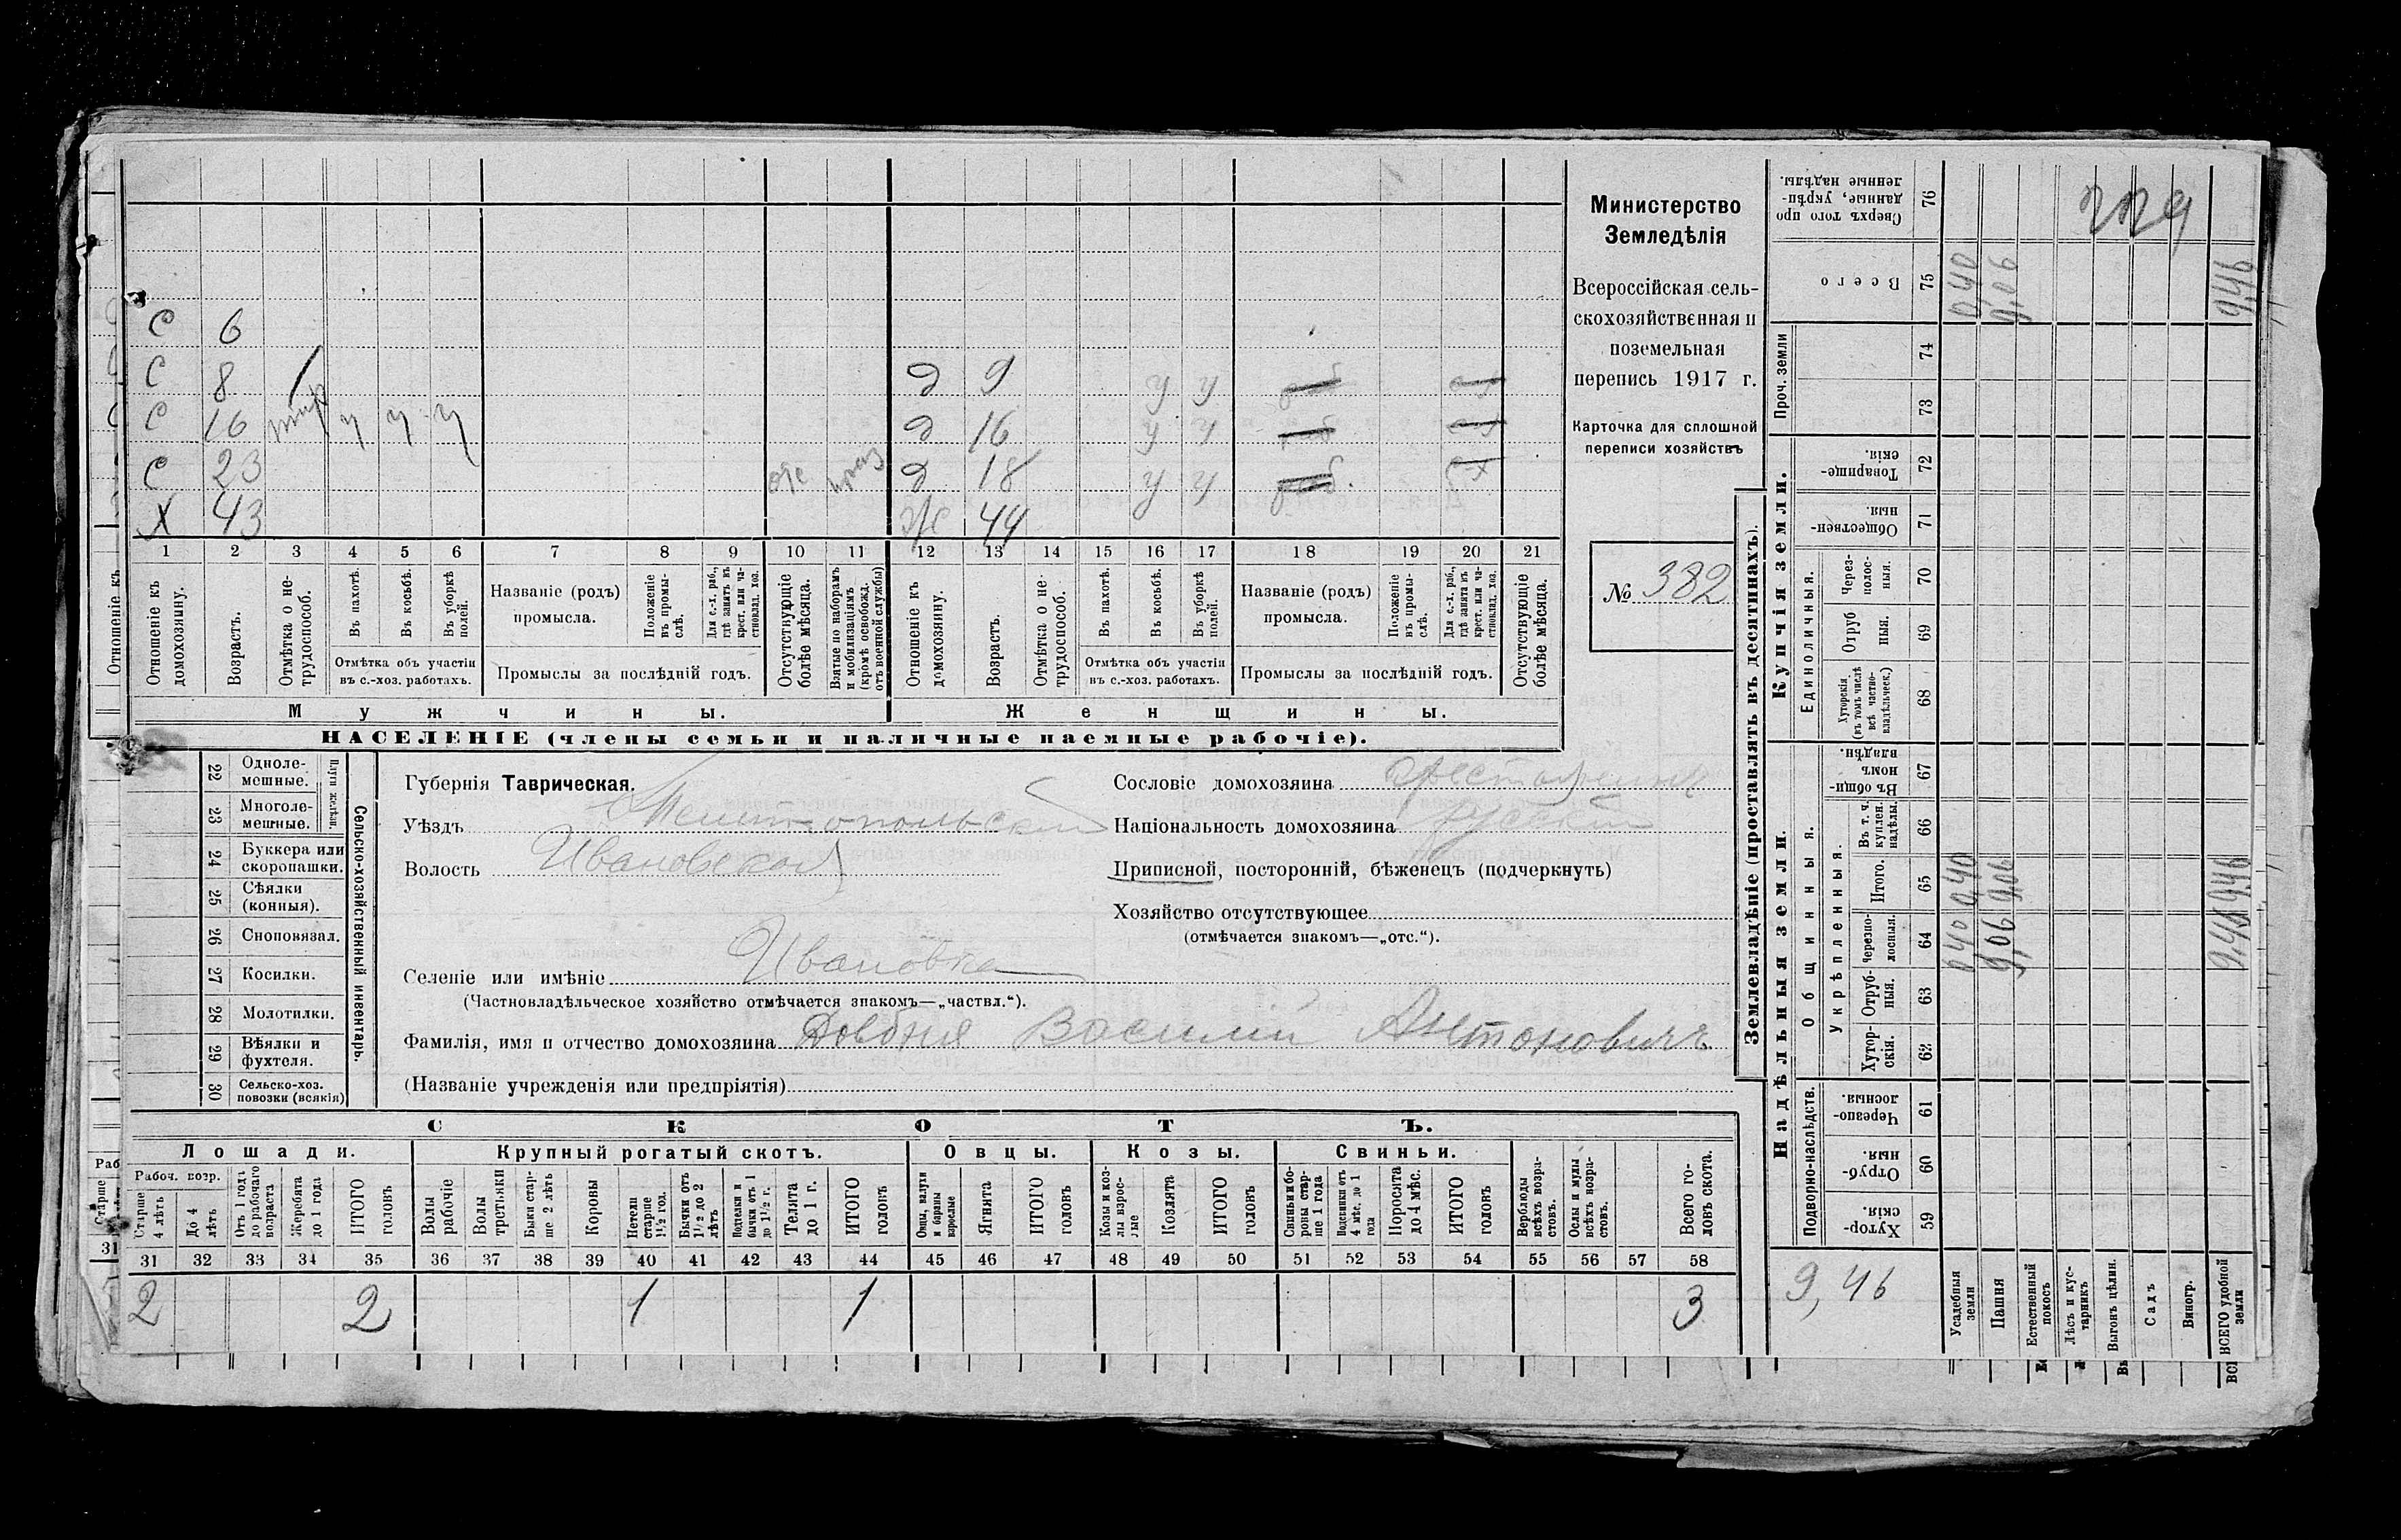 Министерство
Земледѣлія
Всероссійская сель-
скохозяйственная и
поземельная
перепись 1917 г.
Карточка для сплошной
переписи хозяйствъ
№ 382
С 6
С 8 д 9 у у
С 16 у у у д 16 у у
С 23 д 18 у у
Х 43 ж 44
1 2 3 4 5 6 7 8 9 10 11 12 13 14 15 16 17 18 19 20 21
Отношеніе къ домохозяину.
Возрастъ.
Отмѣтка о не-трудоспособ.
Въ пахотѣ.
Въ косьбѣ.
Въ уборкѣ полей.
Отмѣтка объ участіи
въ с.-хоз. работахъ.
Названіе (родъ)
промысла.
Положеніе въ промы-слѣ.
Для с.-х. раб., гдѣ занятъ въ крест. или ча-стновлад. хоз.
Промыслы за послѣдній годъ.
Отсутствующіе болѣе мѣсяца.
Взятые по наборамъ и мобилизаціямъ (кромѣ освобожд. отъ военной службы)
Отношеніе къ домохозяину.
Возрастъ.
Отмѣтка о не-трудоспособ.
Въ пахотѣ.
Въ косьбѣ.
Въ уборкѣ полей.
Отмѣтка объ участіи
въ с.-хоз. работахъ.
Названіе (родъ)
промысла.
Положеніе въ промы-слѣ.
Для с.-х. раб., гдѣ занята въ крест. или ча-стновлад. хоз.
Промыслы за послѣдній годъ.
Отсутствующіе болѣе мѣсяца.
Мужчины. Женщины.
НАСЕЛЕНІЕ (члены семьи и наличные наемные рабочіе).
22 Одноле-мешные.
23 Многоле-мешные.
Плуги желѣзн.
24 Буккера или скоропашки.
25 Сѣялки (конныя).
26 Сноповязал.
27 Косилки.
28 Молотилки.
29 Вѣялки и фухтеля.
30 Сельско-хоз. повозки (всякія)
Сельско-хозяйственный инвентарь.
Губернія Таврическая.
Уѣздъ Мелитопольскій
Волость Ивановской
Селеніе или имѣніе Ивановка
(Частновладѣльческое хозяйство отмѣчается знакомъ—„частвл.“).
Фамилія, имя и отчество домохозяина Довбня Василий Антоновичъ
(Названіе учрежденія или предпріятія)
Сословіе домохозяина крестьянинъ
Національность домохозяина русский
Приписной, посторонній, бѣженецъ (подчеркнуть)
Хозяйство отсутствующее
(отмѣчается знакомъ—„отс.“).
СКОТЪ.
Лошади. Крупный рогатый скотъ. Овцы. Козы. Свиньи.
Рабоч. возр.
Старше 4 лѣтъ
До 4 лѣтъ
Отъ 1 года до рабочаго возраста
Жеребята до 1 года
ИТОГО головъ
Волы рабочіе
Волы третьяки
Быки стар-ше 2 лѣтъ
Коровы
Нетели старше 1 1/2 год.
Бычки отъ 1 1/2 до 2 лѣтъ
Подтелки и бычки отъ 1 до 1 1/2 г.
Телята до 1 г.
ИТОГО головъ
Овцы, валухи и бараны взрослые
Ягнята
ИТОГО головъ
Козы и коз-лы взрос-лые
Козлята
ИТОГО головъ
Свиньи и бо-ровы стар-ше 1 года
Подсвинки отъ 4 мѣс. до 1 года
Поросята до 4 мѣс.
ИТОГО головъ
Верблюды всѣхъ возра-стовъ.
Ослы и мулы всѣхъ возра-стовъ.
Всего го-ловъ скота.
31 32 33 34 35 36 37 38 39 40 41 42 43 44 45 46 47 48 49 50 51 52 53 54 55 56 57 58
2 2 1 1 3
Землевладѣніе (проставлять въ десятинахъ).
Надѣльныя земли. Купчія земли.
Сверхъ того про данные, укрѣп-ленные надѣлы. 76
Всего 75 0,40 9,06 9,46
Проч. земли 74
73
Товарище-скія. 72
Обществен-ныя. 71
Единоличныя.
Через-полос-ныя. 70
Отруб ныя. 69
Хуторскія (въ томъ числѣ всѣ частно-владѣльческ.) 68
Общинныя.
Въ общи-номъ владѣн. 67
Укрѣпленныя.
Въ т. ч. куплен. надѣлы. 66
Итого. 65 0,40 9,06 9,46
Черезпо-лосныя. 64 0,40 9,06 9,46
Отруб-ныя. 63
Хутор-скія. 62
Подворно-наслѣдств.
Черезпо-лосныя. 61
Отруб-ныя. 60
Хутор-скія. 59
9,46
Усадебныя земли
Пашня
Естественный покосъ
Лѣсъ и кус-тарникъ
Выгонъ цѣлин.
Садъ
Виногр.
ВСЕГО удобной земли